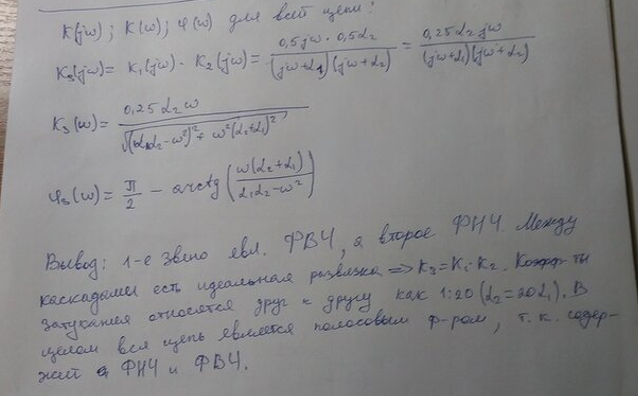 K(jω); K(ω); φ(ω) для всей цепи:
K₃(jω) = K₁(jω) · K₂(jω) = 0,5jω · 0,5α₂ / (jω+α₁)(jω+α₂) = 0,25α₂jω / (jω+α₁)(jω+α₂)
K₃(ω) = 0,25α₂ω / √((α₁α₂−ω²)² + ω²(α₂+α₁)²)
φ₃(ω) = π/2 − arctg (ω(α₂+α₁) / α₁α₂−ω²)
Вывод: 1-е звено явл. ФВЧ, а второе ФНЧ. Между
каскадами есть идеальная развязка ⇒ K₃=K₁·K₂. Коэфф-ты
затухания относятся друг к другу как 1:20 (α₂=20α₁). В
целом вся цепь является полосовым ф-ром, т.к. содер-
жит ФНЧ и ФВЧ.